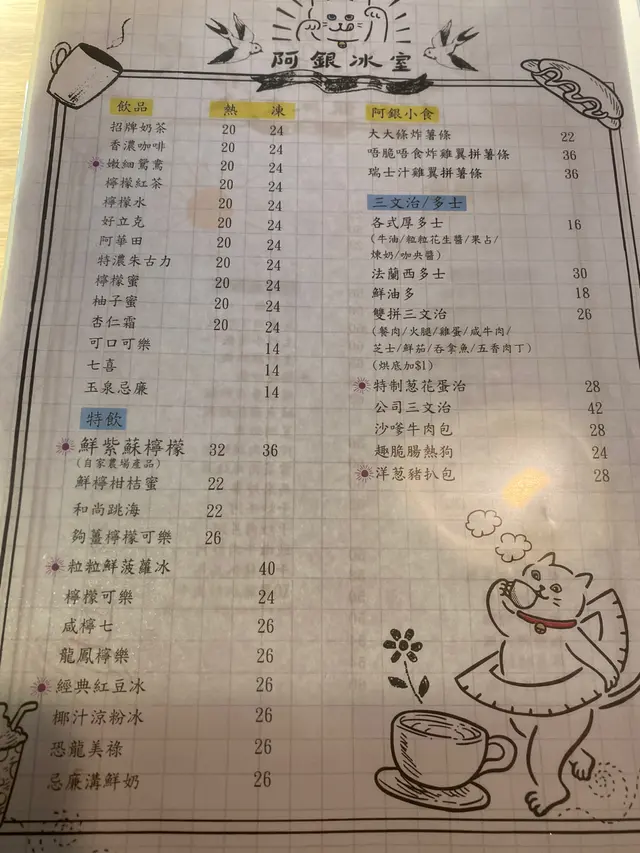 阿銀冰室
飲品 熱 凍
招牌奶茶 20 24
香濃咖啡 20 24
嫩細鴛鴦 20 24
檸檬紅茶 20 24
檸檬水 20 24
好立克 20 24
阿華田 20 24
特濃朱古力 20 24
檸檬蜜 20 24
柚子蜜 20 24
杏仁霜 20 24
可口可樂 14
七喜 14
玉泉忌廉 14
特飲
鮮紫蘇檸檬 32 36
(自家農場產品)
鮮檸柑桔蜜 22
和尚跳海 22
夠薑檸檬可樂 26
粒粒鮮菠蘿冰 40
檸檬可樂 24
咸檸七 26
龍鳳檸樂 26
經典紅豆冰 26
椰汁涼粉冰 26
恐龍美祿 26
忌廉溝鮮奶 26
阿銀小食
大大條炸薯條 22
唔脆唔食炸雞翼拼薯條 36
瑞士汁雞翼拼薯條 36
三文治/多士
各式厚多士 16
(牛油/粒粒花生醬/果占/
煉奶/咖央醬)
法蘭西多士 30
鮮油多 18
雙拼三文治 26
(餐肉/火腿/雞蛋/咸牛肉/
芝士/鮮茄/吞拿魚/五香肉丁)
(烘底加$1)
特制蔥花蛋治 28
公司三文治 42
沙嗲牛肉包 28
趣脆腸熱狗 24
洋蔥豬扒包 28